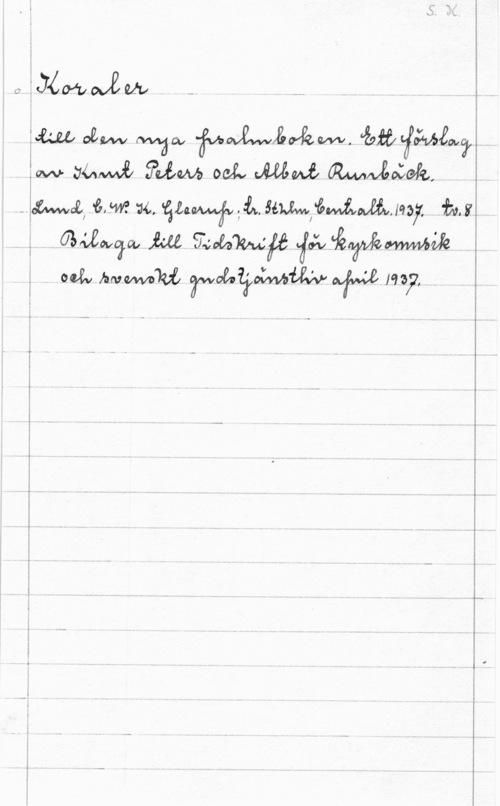 S. K.
Koraler
till den nya psalmboken. Ett förslag
av Knut Peters och Albert Runbäck.
Lund, C. W. K. Gleerup; tr. Sthlm, Centraltr. 1937. tv. 8
Bilaga till Tidskrift för kyrkomusik
och svenskt gudstjänstliv april 1937.